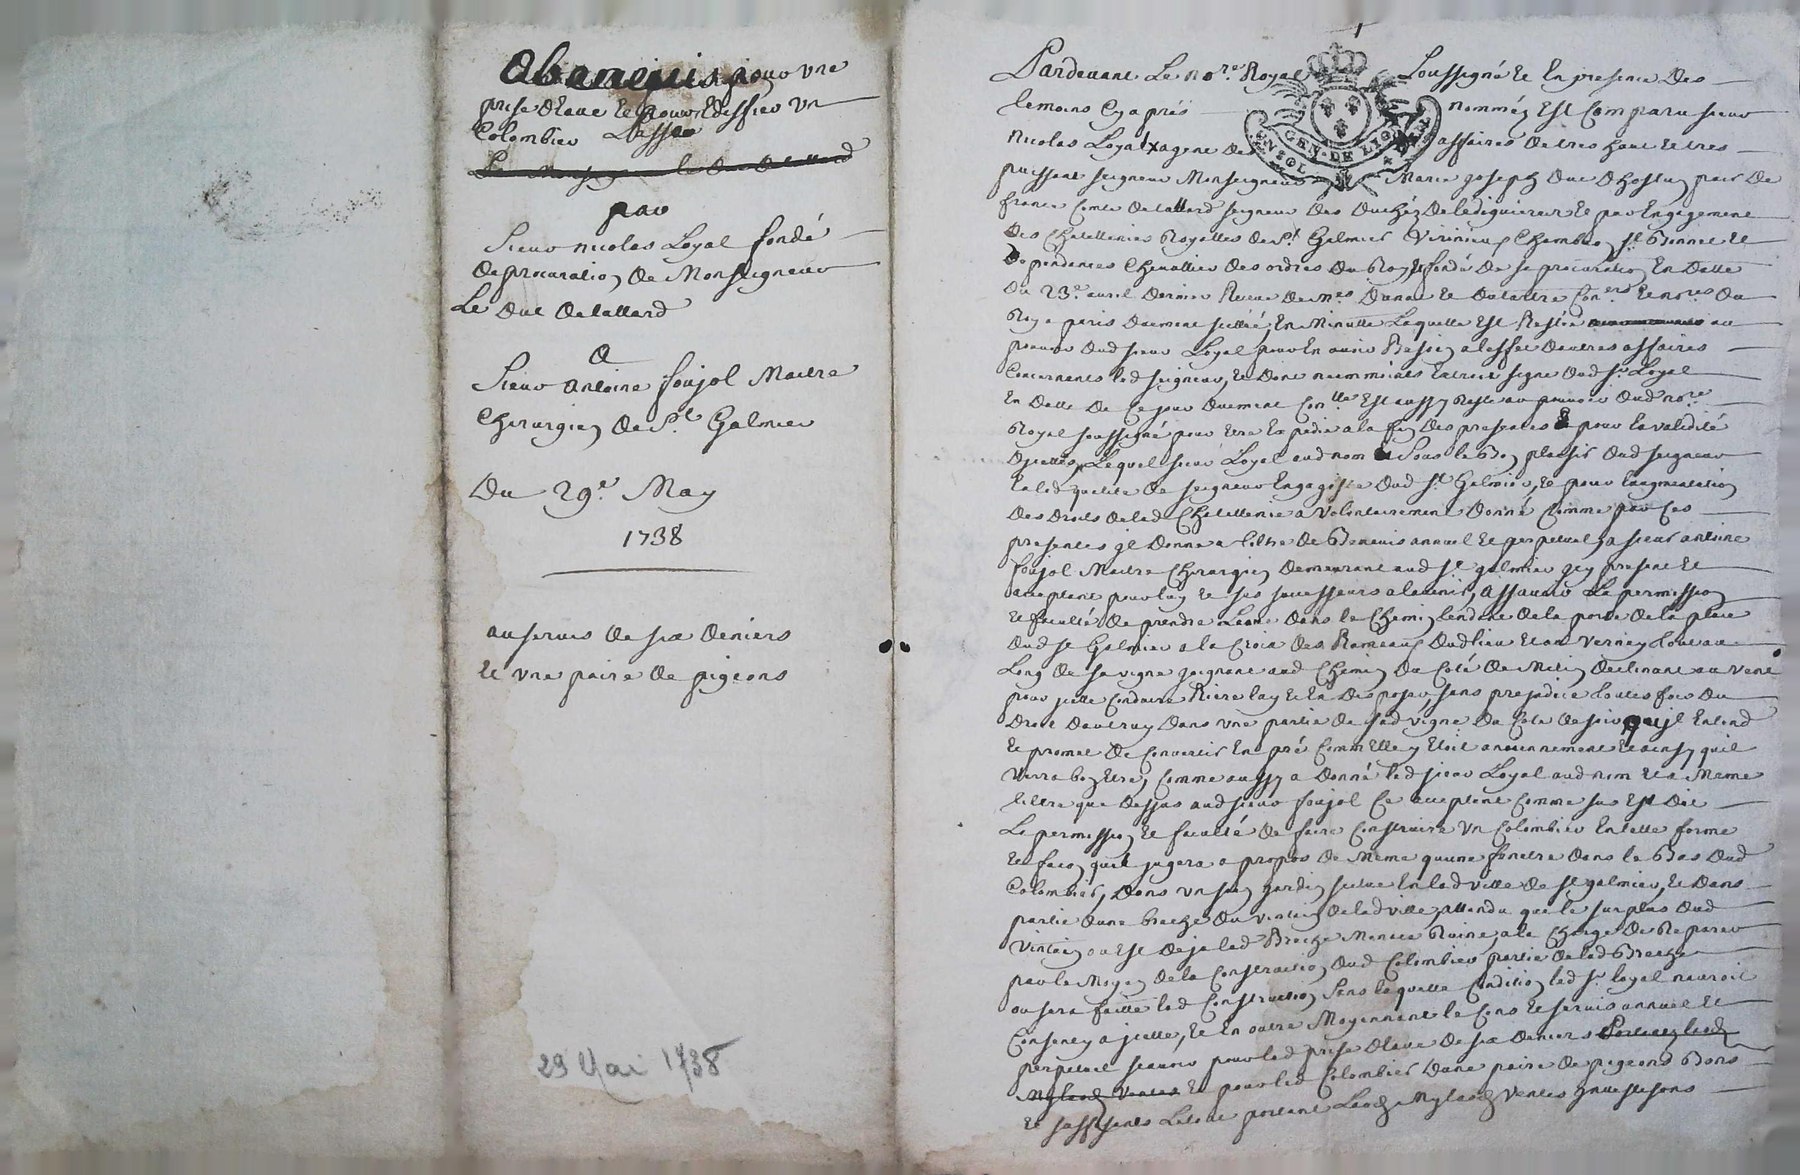 Abenevis pour une
prise deaue et pour Ediffier un
Colombier Passé
par
Sieur nicolas Loyal fondé
de procuration de Monseigneur
Le Duc de tallard
A
Sieur antoine foujol Maitre
Chirurgien de St Galmier
Du 29e May
1738
au servis de six deniers
et une paire de pigeons
29 Mai 1738
Pardevant Le nore Royal Soussigné et En presence des
temoins Cy aprés nommés est Comparu sieur
Nicolas Loyal agent des affaires de tres haut et tres
GEN. DE LION
puissant seigneur Monseigneur Marie joseph duc dhostun pair de
france Comte de tallard seigneur des duchéz de lediguieres et par Engagement
des Chatellenies Royalles de St Galmier Virinieu Chambeon st Bonnet et
dependances Chevallier des ordres du Roy et fondé de sa procuration En datte
du 23e avril dernier Receue de mes et nores du
Roy a paris duement scellé, En Minutte Laquelle est Restée au
pouvoir dud sieur Loyal pour En avoir Besoin a leffet dautres affaires
Concernants led seigneur, et dont signé dud sr Loyal
En datte de Ce jour duement Conlle est aussy Resté au pouvoir dud nore
Royal soussigné pour etre Expedié a la fin des presentes pour la validité
dicelles, Lequel sieur Loyal aud nom Sous le Bon plaisir dud seigneur
En lad qualité de seigneur Engagiste dud st Galmier, et pour laugmentation
des droits de lad Chatellenie a Volontairement donné Comme par Ces
presentes il donne a titre de Benevis annuel et perpetuel a sieur antoine
foujol Maitre Chirurgien demeurant aud st galmier icy present et
acceptant pour luy et ses successeurs a lavenir, assavoir La permission
et faculté de prendre Leaue dans le Chemin tendant de la porte de la place
dud st Galmier a la Croix des Rameaux dud lieu et au Verney tout au
Long de sa vigne joignant aud Chemin du Coté de Matin declinant au vent
pour icelle Conduire Riere luy et En disposer sans prejudice toutes fois du
droit dautruy dans une partie de sad vigne du Coté de soir quil Entend
et promet de Convertir En pré Comme Elle y Etoit anciennement et ainsy quil
verra bon Etre, Comme aussy a donné led sieur Loyal aud nom et a Meme
tiltre que dessus aud sieur foujol Ce acceptant Comme sus Est dit
La permission et faculté de faire Construire un Colombier En telle forme
et facon quil jugera a propos de Meme quune fenetre dans le Bas dud
Colombier, dans un sien jardin scitué En lad ville de st galmier, et dans
partie dune breche du vintain de lad ville, attendu que le surplus dud
vintain ou est deja lad Breche Menace Ruine, a la Charge de Reparer
par le Moyen de la Construction dud Colombier partie de lad Breche
ou sera faitte lad Construction Sans laquelle Condition led sr loyal nauroit
Consenty a icelle, et En outre Moyennant le Cens et servis annuel et
perpetuel scavoir pour lad prise deaue de six deniers
et pour led Colombier dune paire de pigeons Bons
et suffisents Le tout portant Laods Mylaods Ventes